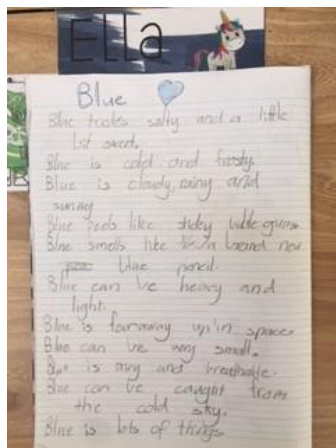 Ella
Blue
Blue tastes salty and a little
bit sweet.
Blue is cold and frosty.
Blue is cloudy, rainy and
sunny
Blue feels like sticky wide gums
Blue smells like a brand new
blue pencil.
Blue can be heavy and
light.
Blue is far away up in space.
Blue can be very small.
Blue is airy and breathable.
Blue can be caught from
the cold sky.
Blue is lots of things